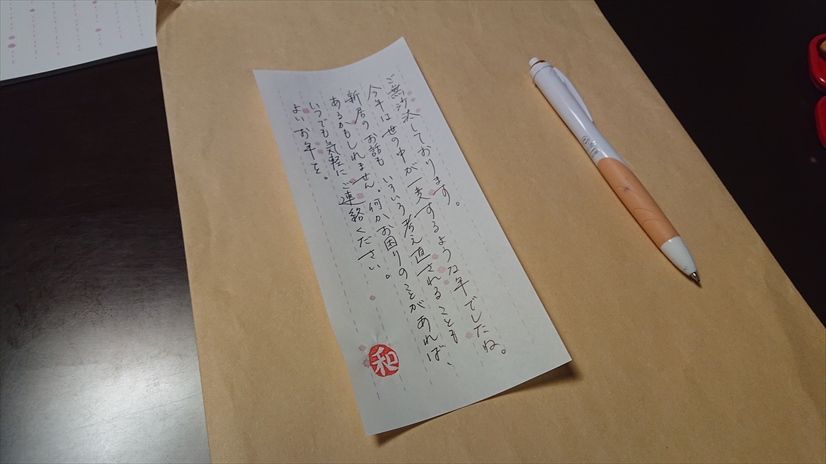 ご無沙汰しております。
今年は世の中が一変するような年でしたね。
新居のお話も、いろいろ考え直されることも
あるかもしれません。何かお困りのことがあれば、
いつでも気軽にご連絡ください。
よいお年を。
和